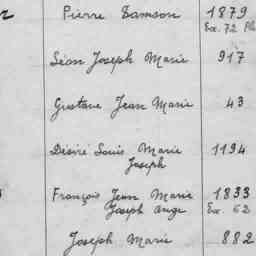 Pierre Samson 1879
Ex. 72 Pl
Léon Joseph Marie 917
Gustave Jean Marie 43
Désiré Louis Marie 1194
Joseph
François Jean Marie 1833
Joseph Ange Ex. 62
Joseph Marie 882